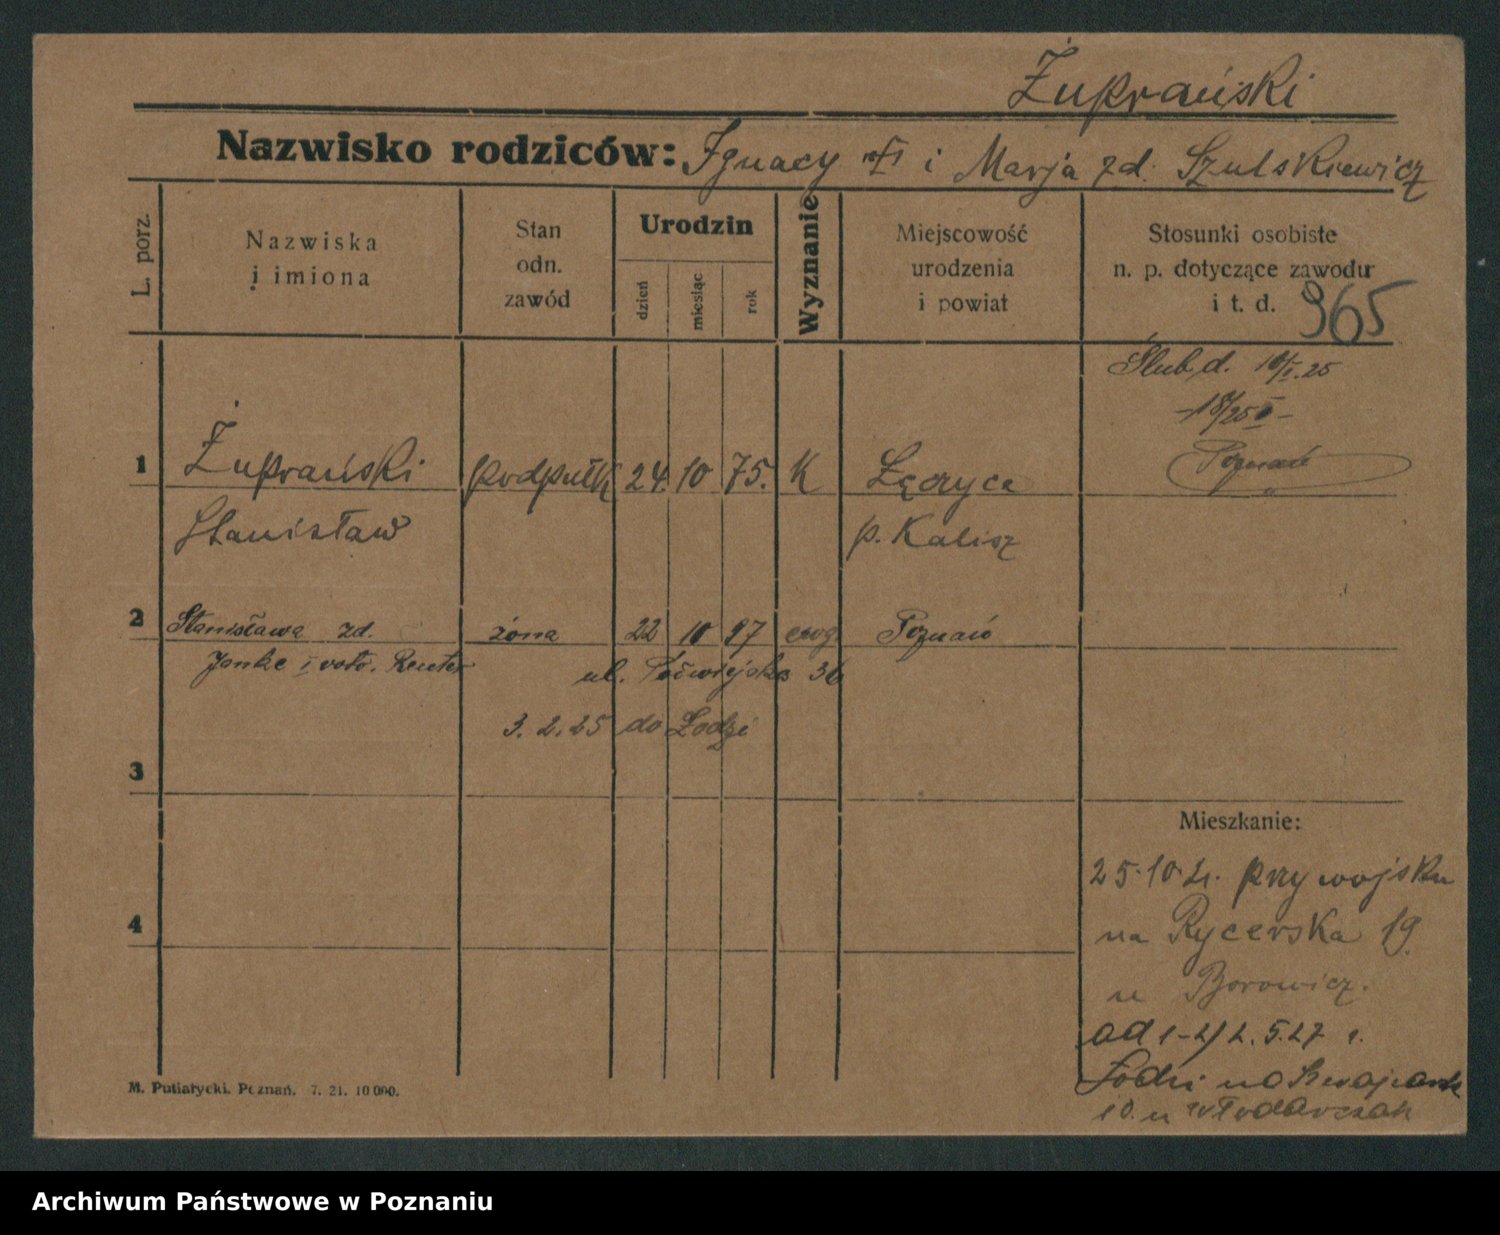 Żuprański
Nazwisko rodziców: Ignacy i Marja zd. Szulskiewicz
L. porz.
Nazwiska
i imiona
Stan
odn.
zawód
Urodzin
dzień
miesiąc
rok
Wyznanie
Miejscowość
urodzenia
i powiat
Stosunki osobiste
n. p. dotyczące zawodu
i t. d. 965
Ślub d. 25
Poznań
1 Żuprański podpułk 24. 10 75. K Łęczyca
Stanisław p. Kalisz
2 Stanisława zd. żona 22 10 97 ewg. Poznań
Janke I voto. Reuter ul. 36
3. 2. 25 do Łodzi
3
Mieszkanie:
25.10.21. przy wojsku
4
na Rycerska 19
u Borowicz.
od 1-2/2.5.27 r.
Łodzi
10. u Włodarczak
M. Putiatycki. Poznań. 7. 21. 10 000.
Archiwum Państwowe w Poznaniu